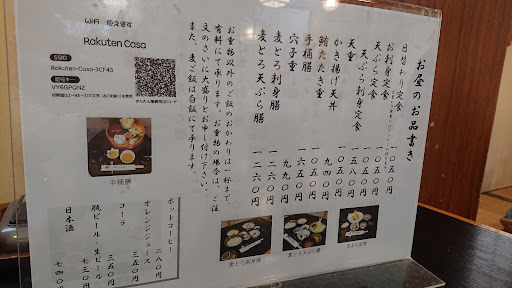 お昼のお品書き
日替わり定食
お刺身定食
天ぷら定食
天ぷら刺身定食 一五八〇円
天重
かき揚げ天丼 九四〇円
鮪たたき重 一〇五〇円
手桶膳
穴子重 九九〇円
麦とろ刺身膳 一二六〇円
麦とろ天ぷら膳 一二六〇円
お重物以外のご飯のおかわりは一杯まで、
有料にて承ります。お重物の場合は、ご注
文のさいに大盛りとお申し付け下さい。
また、麦ご飯は白飯にて承ります。
ホットコーヒー 二八〇円
オレンジジュース 三五〇円
コーラ 三五〇円
瓶ビール・生ビール 七三〇円
日本酒 七四〇
WiFi 使えます
Rakuten Casa
SSID
Rakuten-Casa-3CF43
暗号キー
かんたん接続用QRコード
手桶膳
麦とろ刺身膳
麦とろ天ぷら膳
天ぷら定食